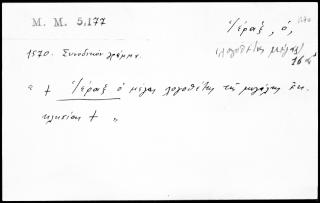 M. M. 5,177
Ἱέραξ, ὁ,
(λογοθέτης μέγας)
16 αἰ
1570. Συνοδικὸν γράμμα.
" + Ἱέραξ ὁ μέγας λογοθέτης τῆς μεγάλης ἐκ-
κλησίας + "